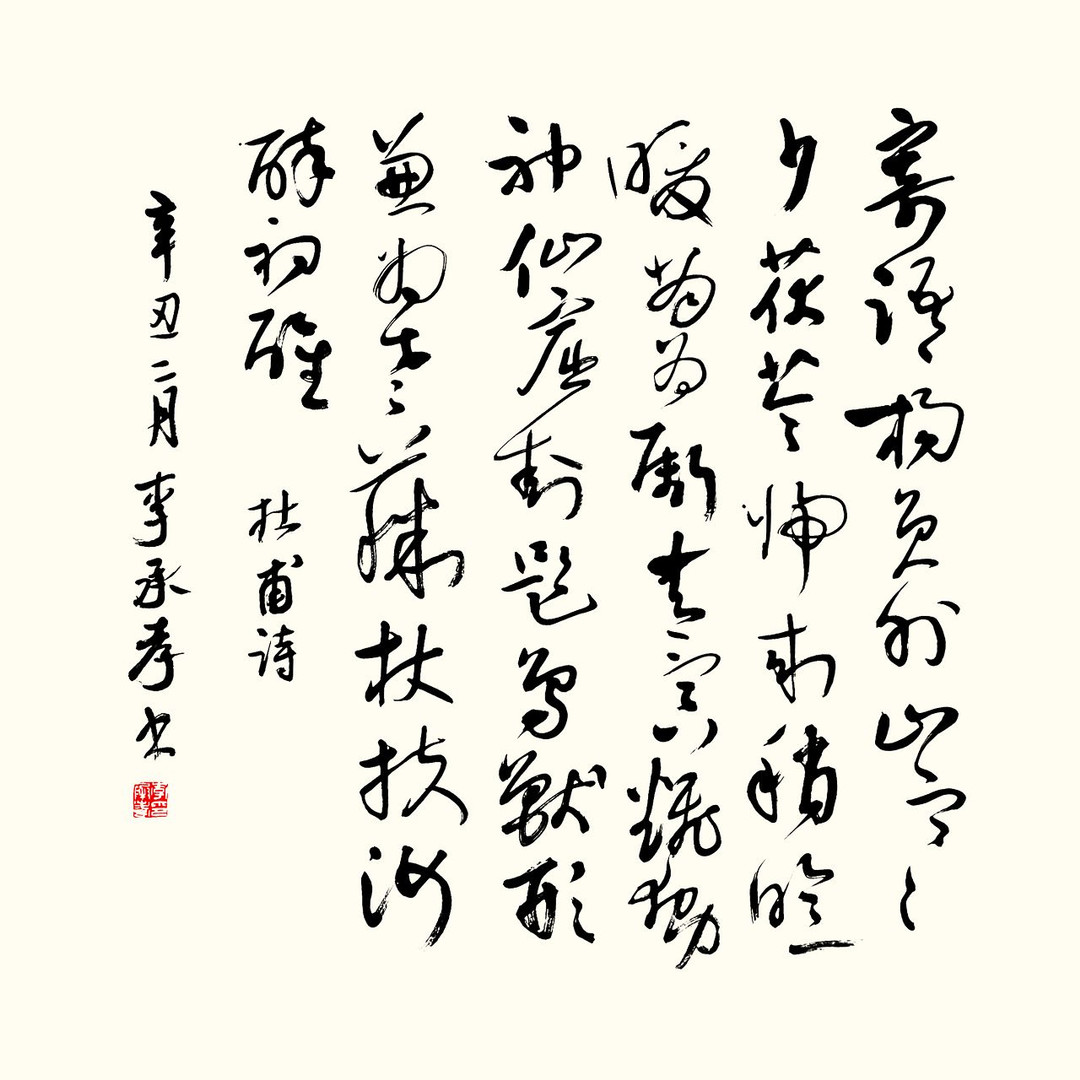 寄語楊員外山寒
少茯苓歸來稍暄
暖當為斸青冥翻動
神仙窟封題鳥獸形
兼將老藤杖扶汝
醉初醒 杜甫詩
辛丑二月李承孝書